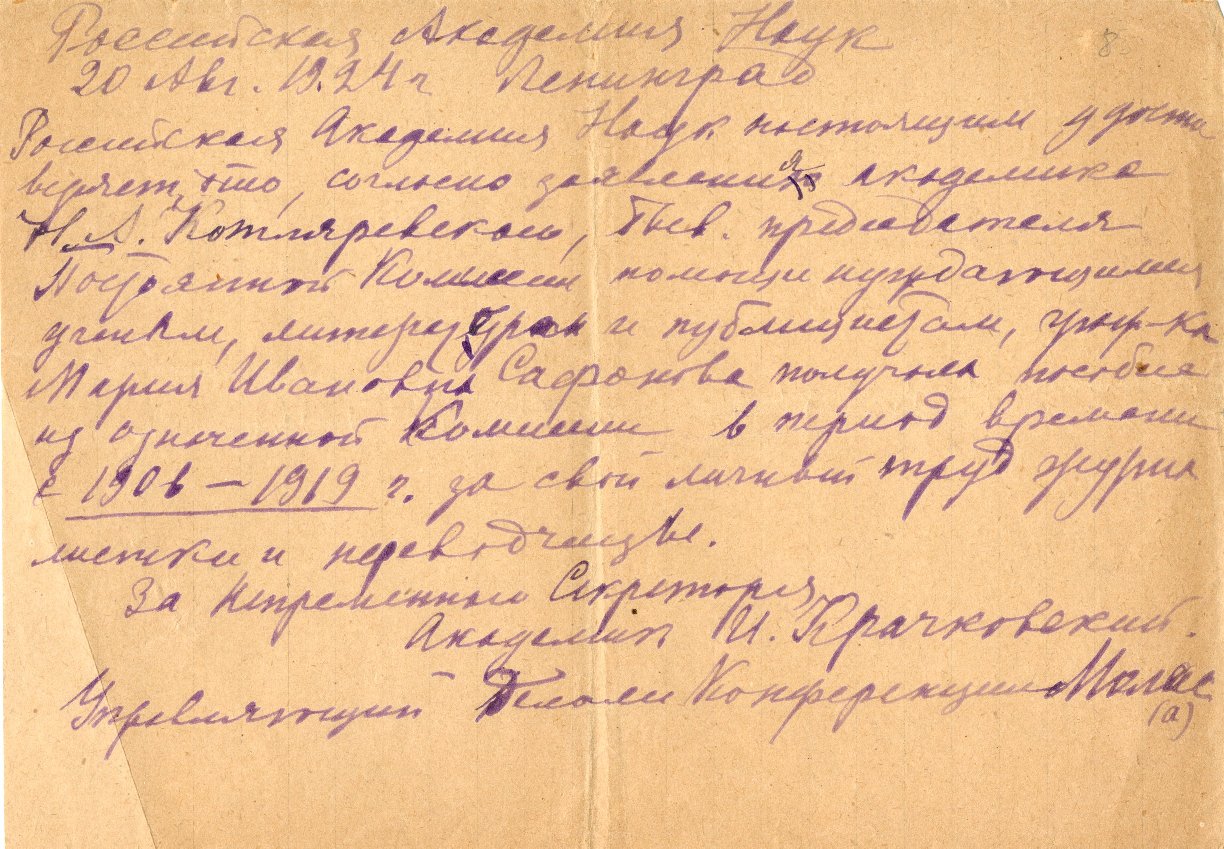 Российская Академия Наук
20 Авг. 1924 г Ленинград
Российская Академия Наук настоящим удосто
веряет, что, согласно заявления академика
Н. А. Котляревского, бывш. председателя
Постоянной Комиссии помощи нуждающимся
ученым, литераторам и публицистам, гр-ка
Мария Ивановна Сафонова получала пособие
из означенной Комиссии в период времени
с 1906 – 1919 г. за свой личный труд журна
листки и переводчицы.
За Непременного Секретаря,
Академик И. Крачковский.
Управляющий Делами Конференции Молас
(а)